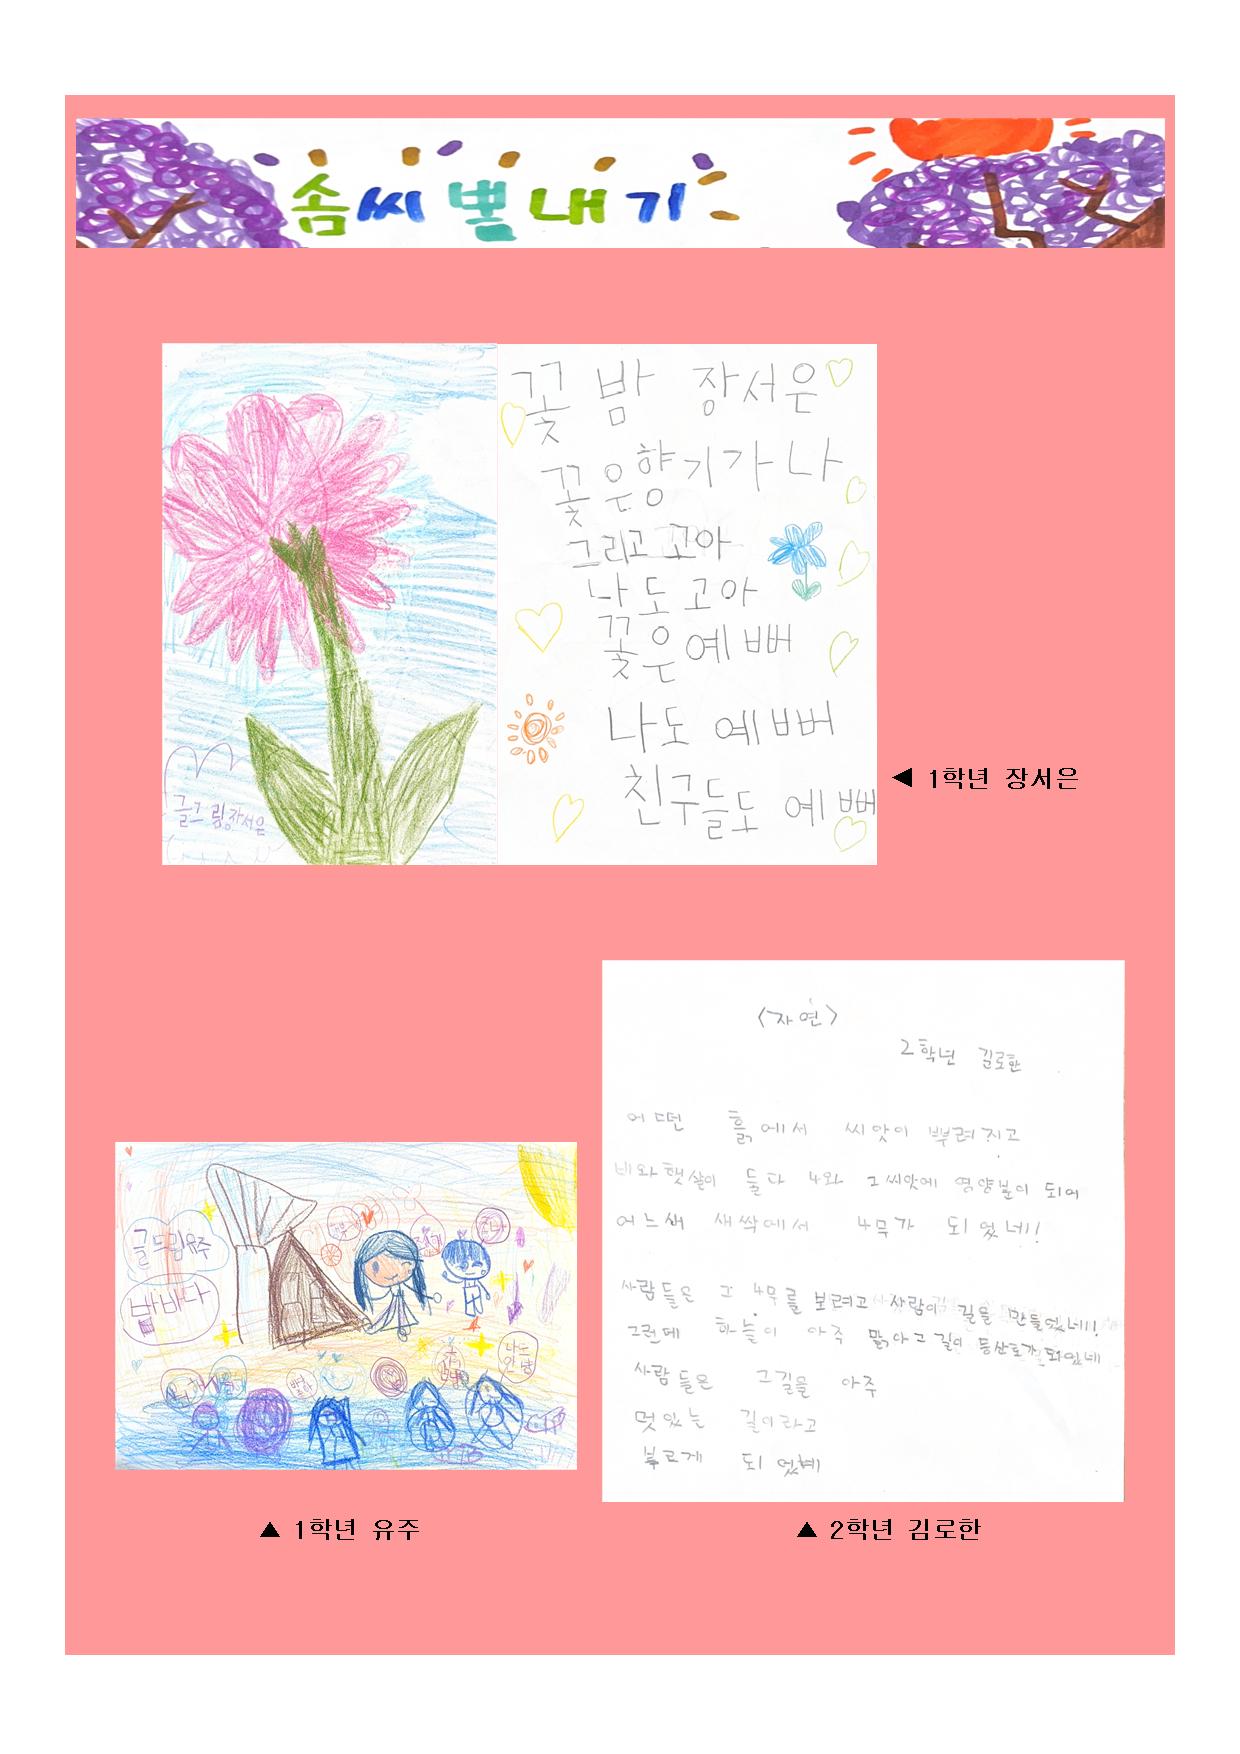 솜씨 뽐내기
꽃 밤 장서은
꽃은향기가 나
그리고 꼬아
나도 고아
꽃은예뻐
나도 예뻐
친구들도 예뻐
글그림장서은
◀ 1학년 장서은
<자연>
2학년 김로한
어떤 흙에서 씨앗이 뿌려지고
비와햇살이 둘다 4와 그씨앗에 영양분이 되어
어느새 새싹에서 4무가 되었네!
사람들은 그 4무를 보려고 사람이 길을 만들었네!!
그런데 하늘이 아주 맑아고길이 등산로가되었네
사람들은 그길을 아주
멋있는 길이라고
부르게 되었혜
글그림유주
밤바다
나도
안녕
▲ 1학년 유주
▲ 2학년 김로한